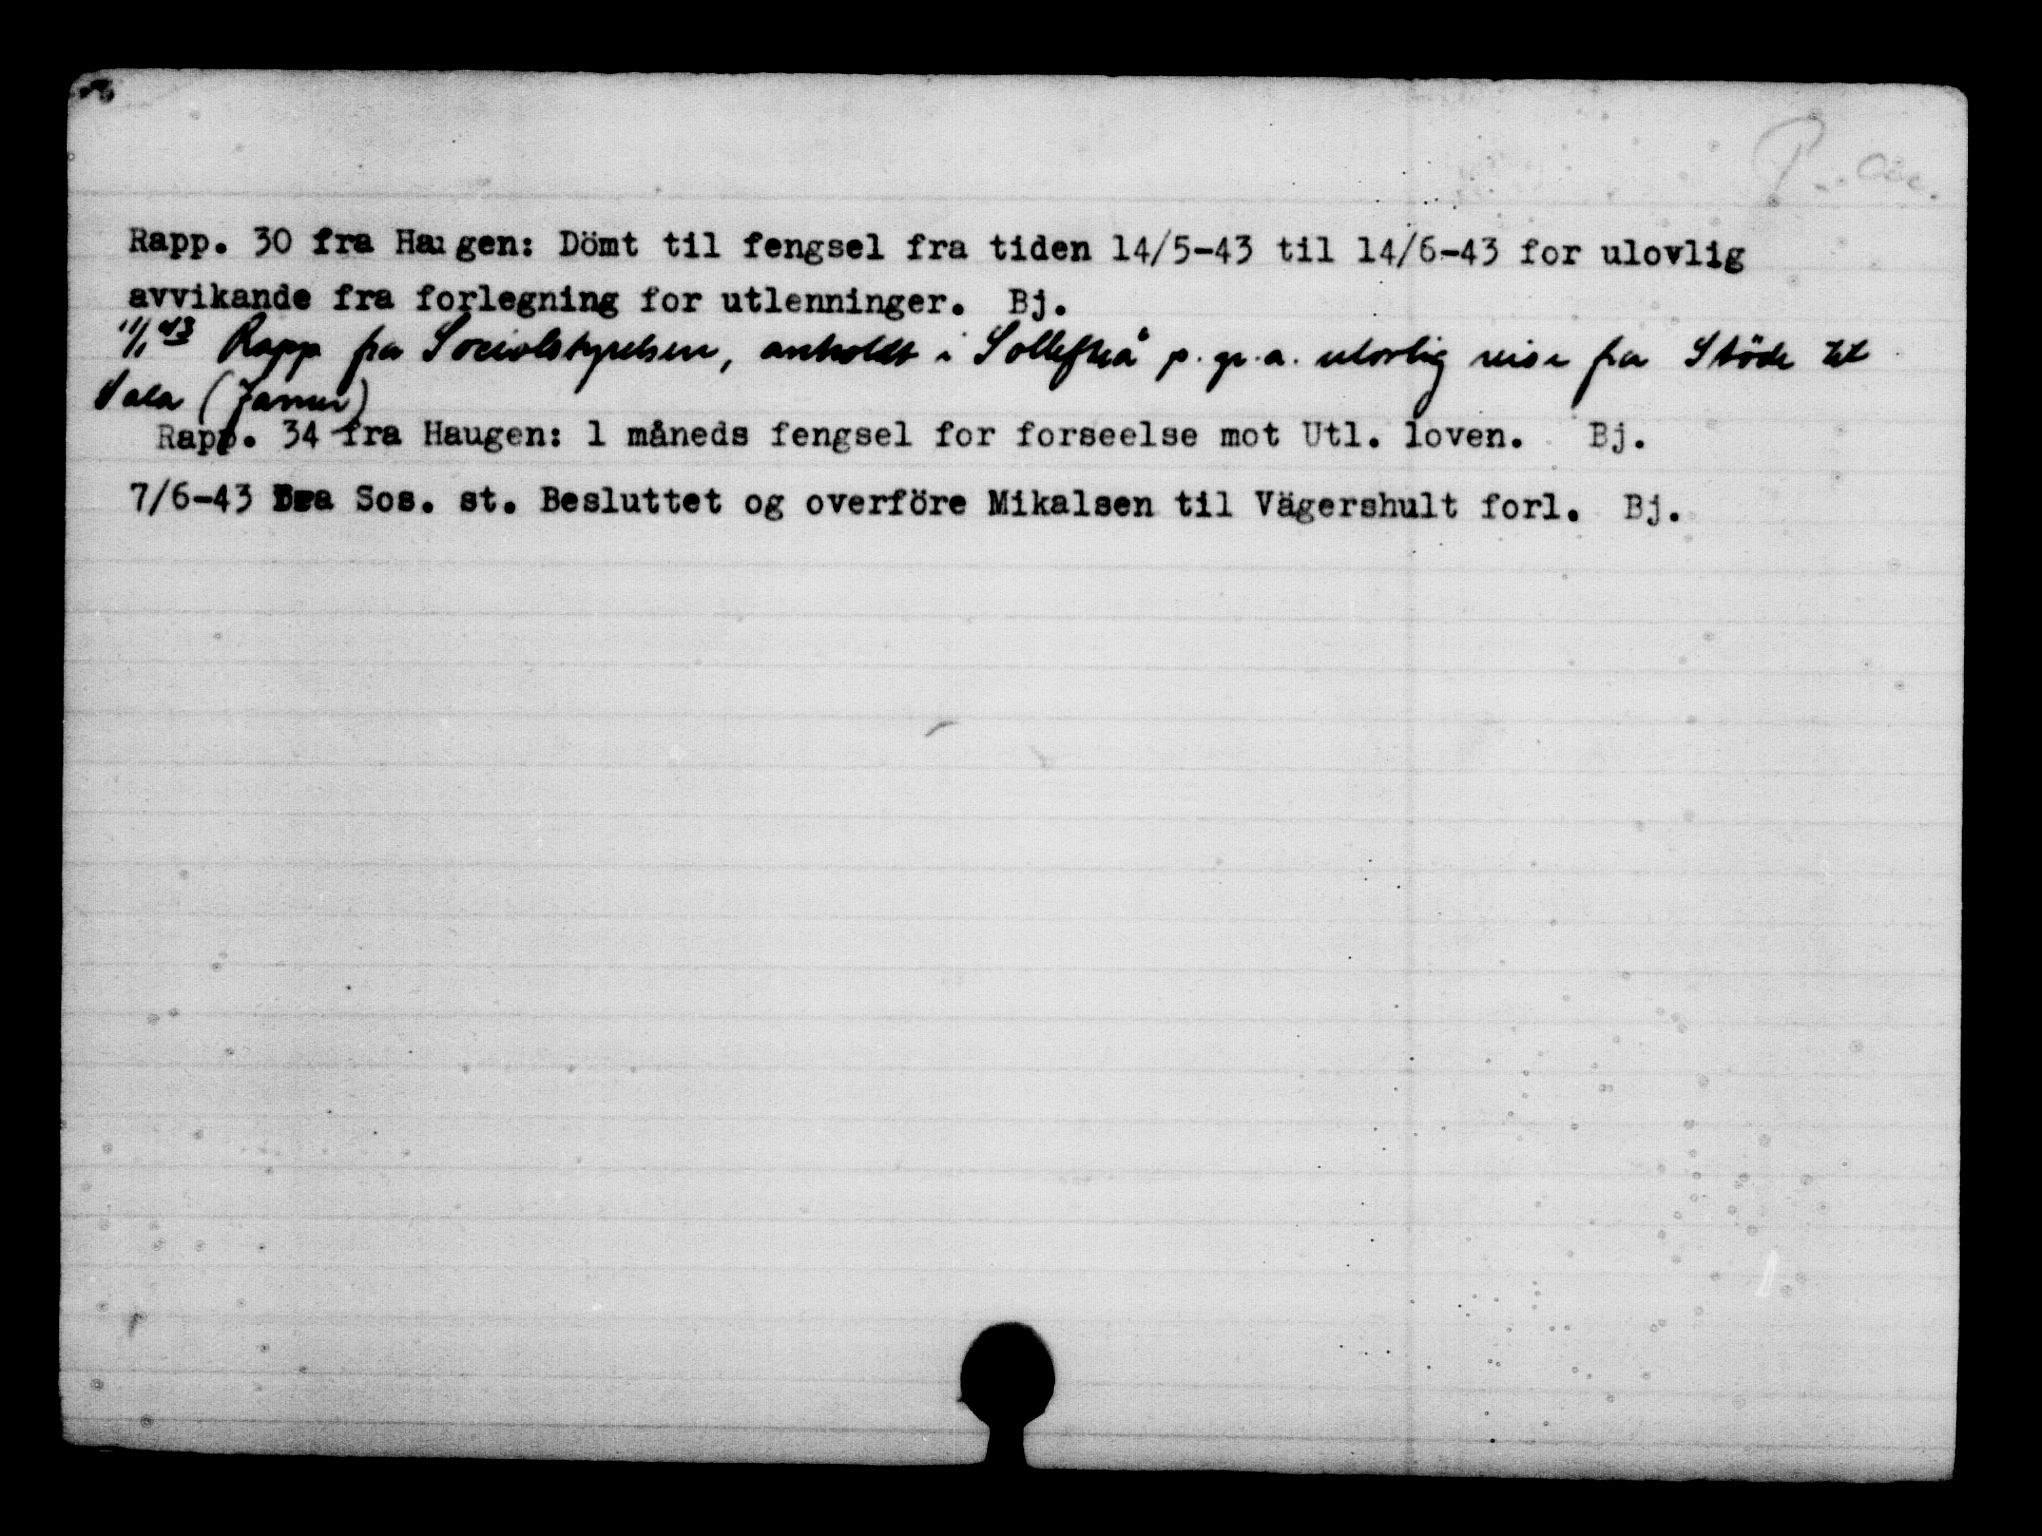 Rapp. 30 fra Haugen: Dömt til fengsel fra tiden 14/5-43 til 14/6-43 for ulovlig
avvikande fra forlegning for utlenninger. Bj.
11/1 43 Rapp fra Socialstyrelsen, anholdt i Sollefteå p. gr. a. ulovlig reise fra Stöde til
Sala (Januar)
Rapp. 34 fra Haugen: 1 måneds fengsel for forseelse mot Utl. loven. Bj.
7/6-43 Fra Sos. st. Besluttet og overföre Mikalsen til Vägershult forl. Bj.